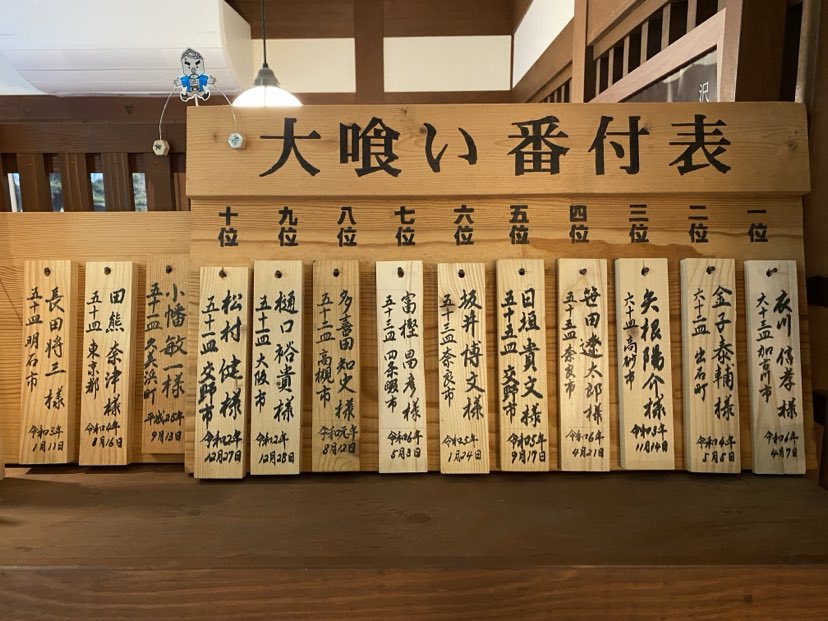 大喰い番付表
沢
一位
衣川 信孝様
六十三皿 加古川市
令和6年
4月7日
二位
金子泰輔様
六十三皿 出石町
令和4年
5月5日
三位
矢根陽介様
六十皿 高砂市
令和3年
11月14日
四位
笹田遼太郎様
五十五皿 奈良市
令和6年
4月21日
五位
日垣貴文様
五十五皿 交野市
令和5年
9月17日
六位
坂井博文様
五十三皿 奈良市
令和5年
1月24日
七位
富樫昌彦様
五十三皿 四条畷市
令和6年
5月3日
八位
多喜田知史様
五十二皿 高槻市
令和元年
8月12日
九位
樋口裕貴様
五十二皿 大阪市
令和2年
12月28日
十位
松村健様
五十一皿 交野市
令和2年
12月27日
小幡敏一様
五十一皿 久美浜町
平成25年
9月13日
田熊奈津様
五十皿 東京都
令和4年
1月16日
長田将三様
五十皿 明石市
令和3年
1月11日